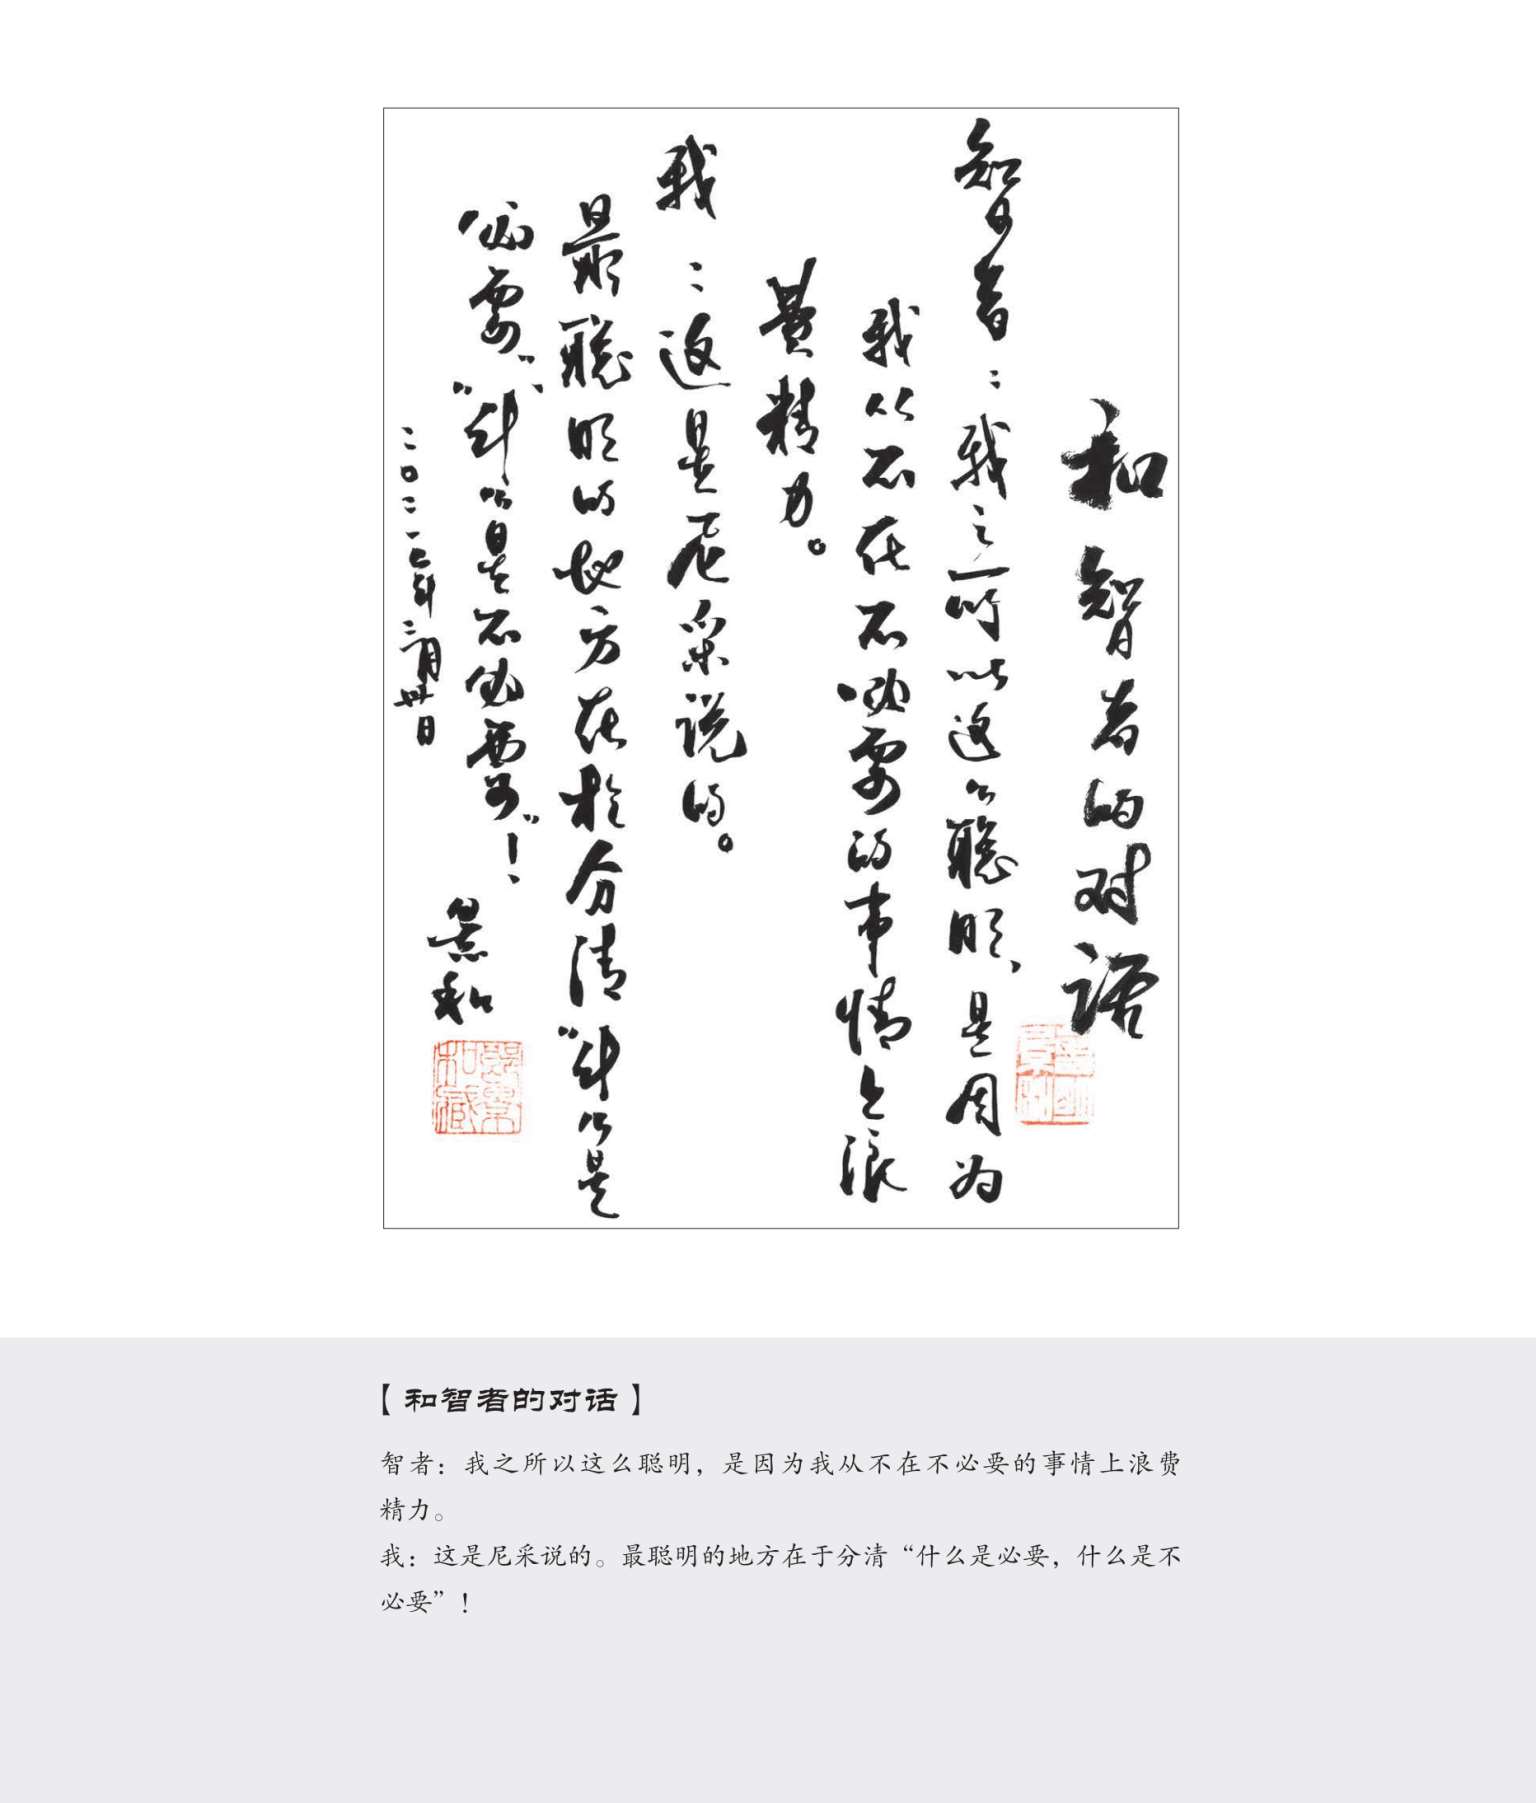 和智者的对话
智者：我之所以这么聪明，是因为
我从不在不必要的事情上浪
費精力。
我：这是尼采说的。
最聪明的地方在於分清“什么是
必要”、“什么是不必要”！
二〇二一年三月廿日
景和
郎景和藏
【和智者的对话】
智者：我之所以这么聪明，是因为我从不在不必要的事情上浪费
精力。
我：这是尼采说的。最聪明的地方在于分清“什么是必要，什么是不
必要”！